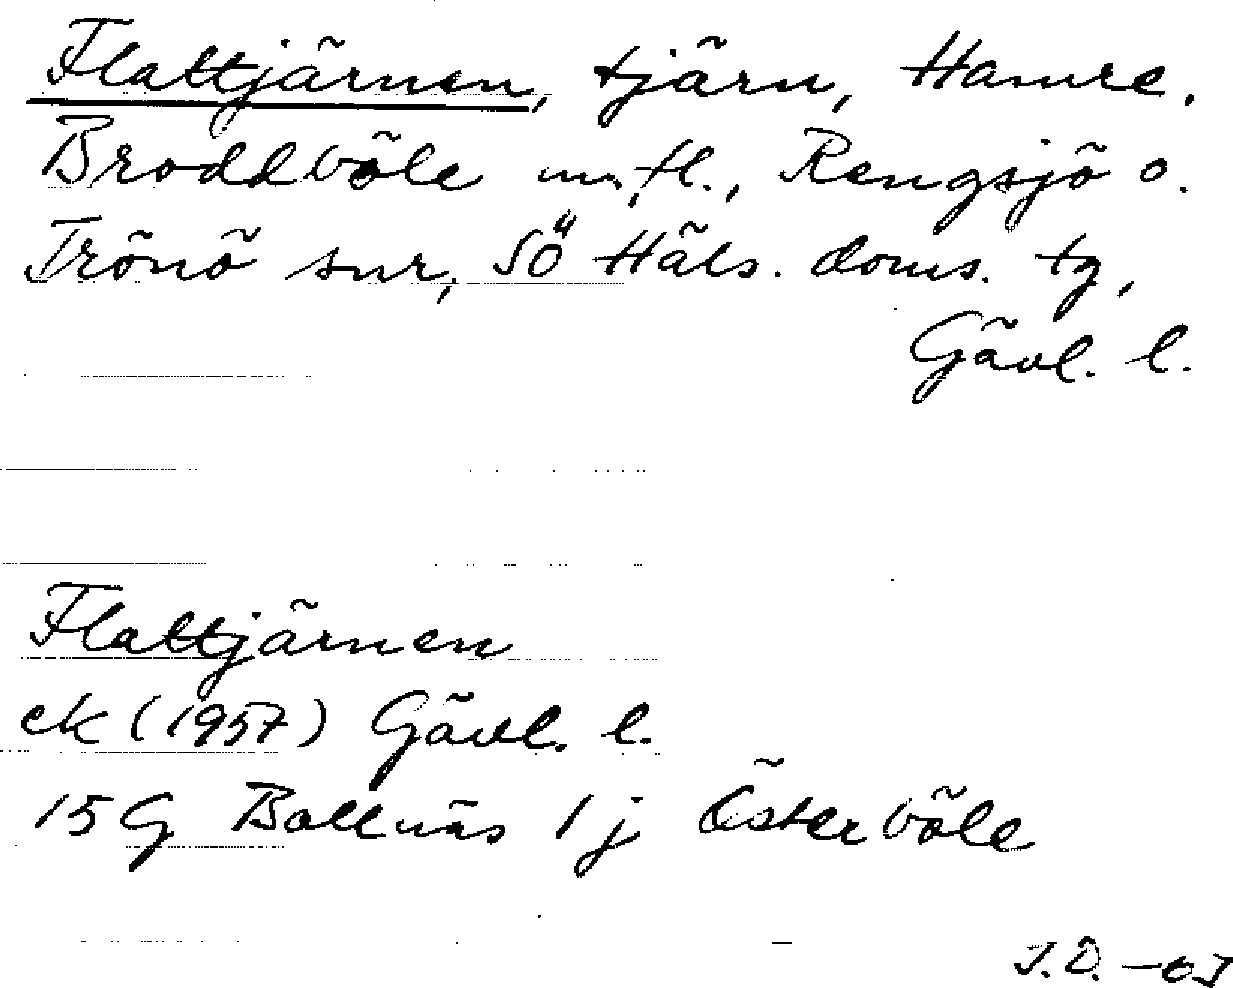 Flattjärnen, tjärn, Hamre,
Broddböle m fl., Rengsjö o.
Trönö snr, SÖ Häls. doms. tg,
Gävl. l.
Flattjärnen
ek (1957) Gävl. l.
15G Bollnäs 1j Österböle